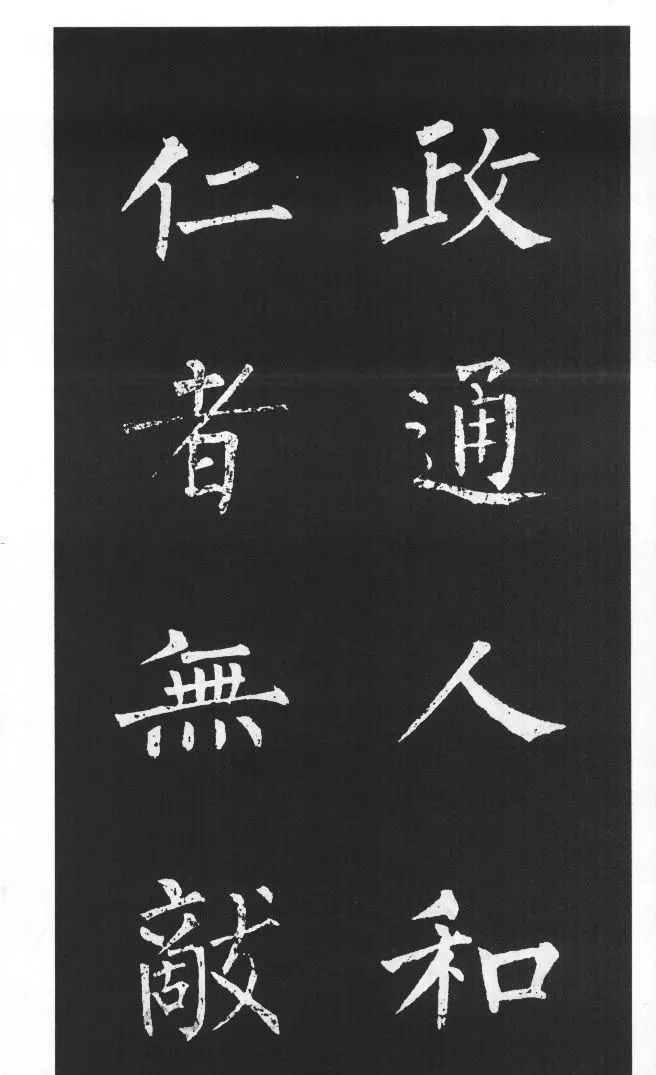 政通人和
仁者無敵